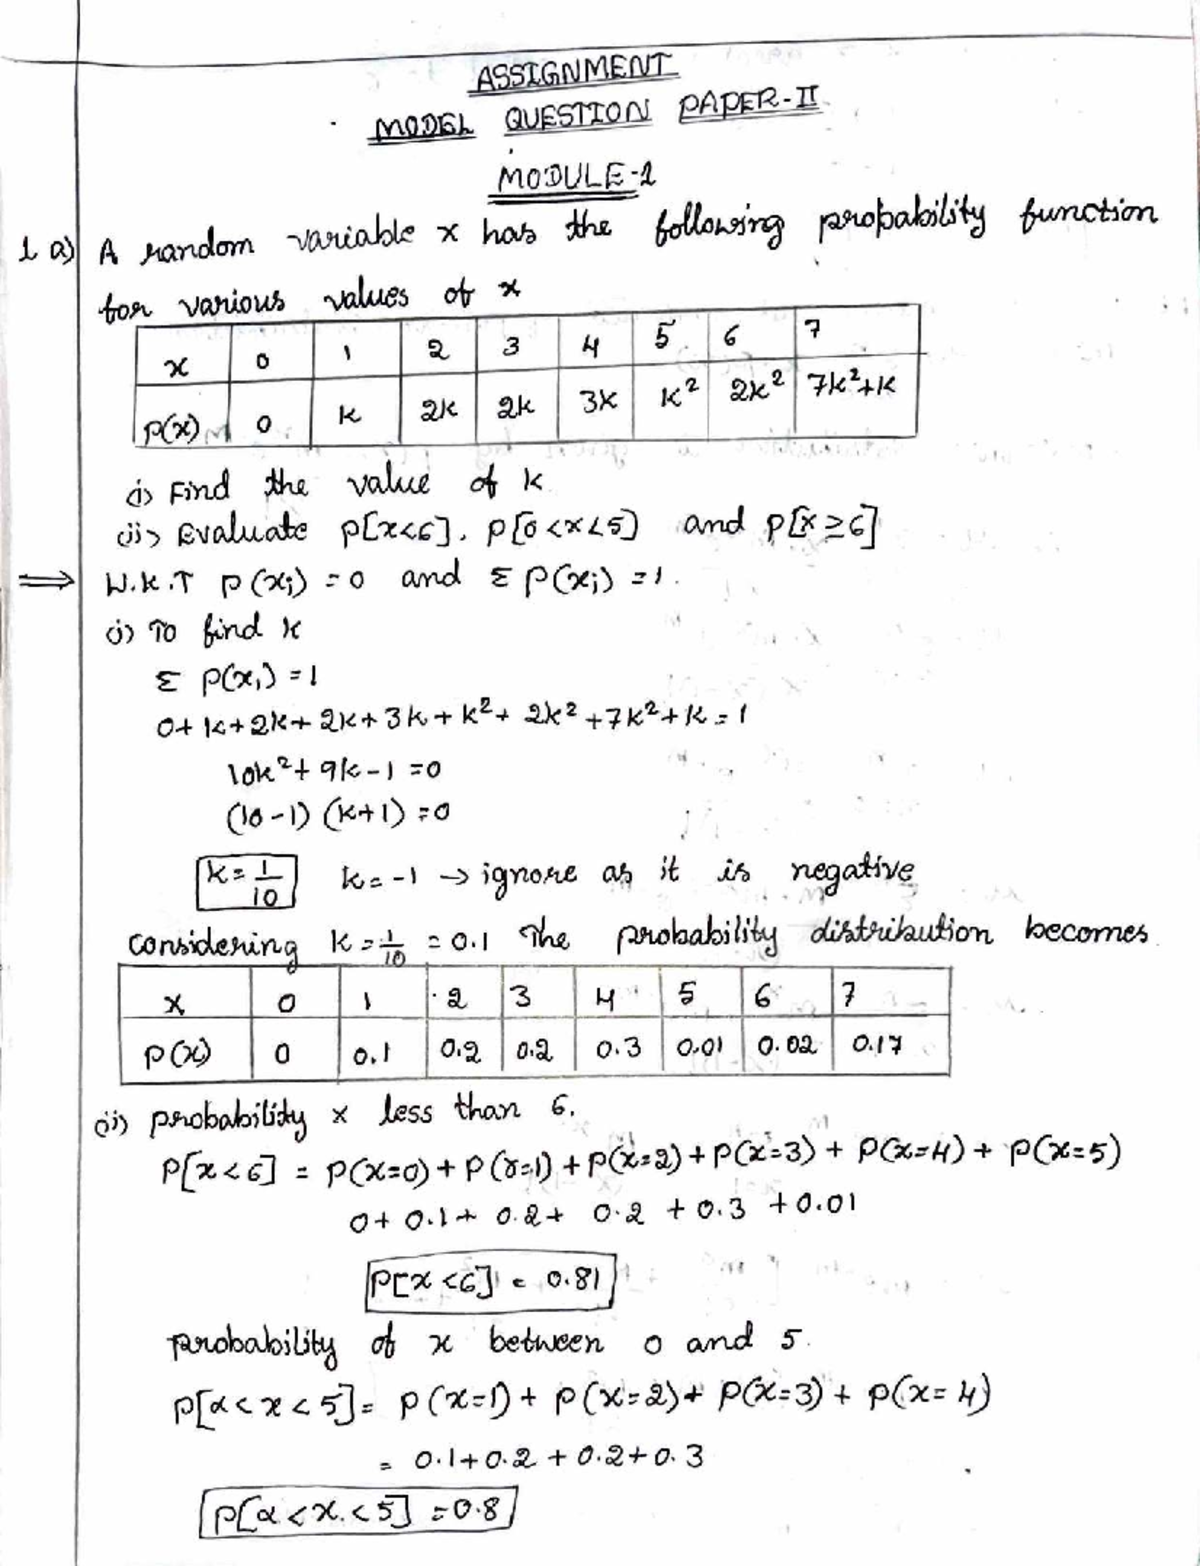 ASSIGNMENT
MODEL QUESTION PAPER-II
MODULE-1
1 a) A random variable x has the following probability function
for various values of x
x 0 1 2 3 4 5 6 7
P(x) 0 k 2k 2k 3k k² 2k² 7k²+k
i) Find the value of k
ii) Evaluate P[x<6], P[0<x<5] and P[x≥6]
⇒ W.K.T P(xi) = 0 and Σ P(xi) = 1.
i) To find k
Σ P(xi) = 1
0+k+2k+2k+3k+k²+2k²+7k²+k=1
10k²+9k-1=0
(10-1) (k+1) =0
k=1/10 k=-1 → ignore as it is negative
considering k=1/10 = 0.1 The probability distribution becomes
x 0 1 2 3 4 5 6 7
P(x) 0 0.1 0.2 0.2 0.3 0.01 0.02 0.17
ii) probability x less than 6.
P[x<6] = P(x=0)+P(x=1)+P(x=2)+P(x=3)+P(x=4)+P(x=5)
0+0.1+0.2+0.2+0.3+0.01
P[x<6] = 0.81
probability of x between 0 and 5.
P[α<x<5]= P(x=1)+P(x=2)+P(x=3)+P(x=4)
= 0.1+0.2+0.2+0.3
P[α<x<5] =0.8